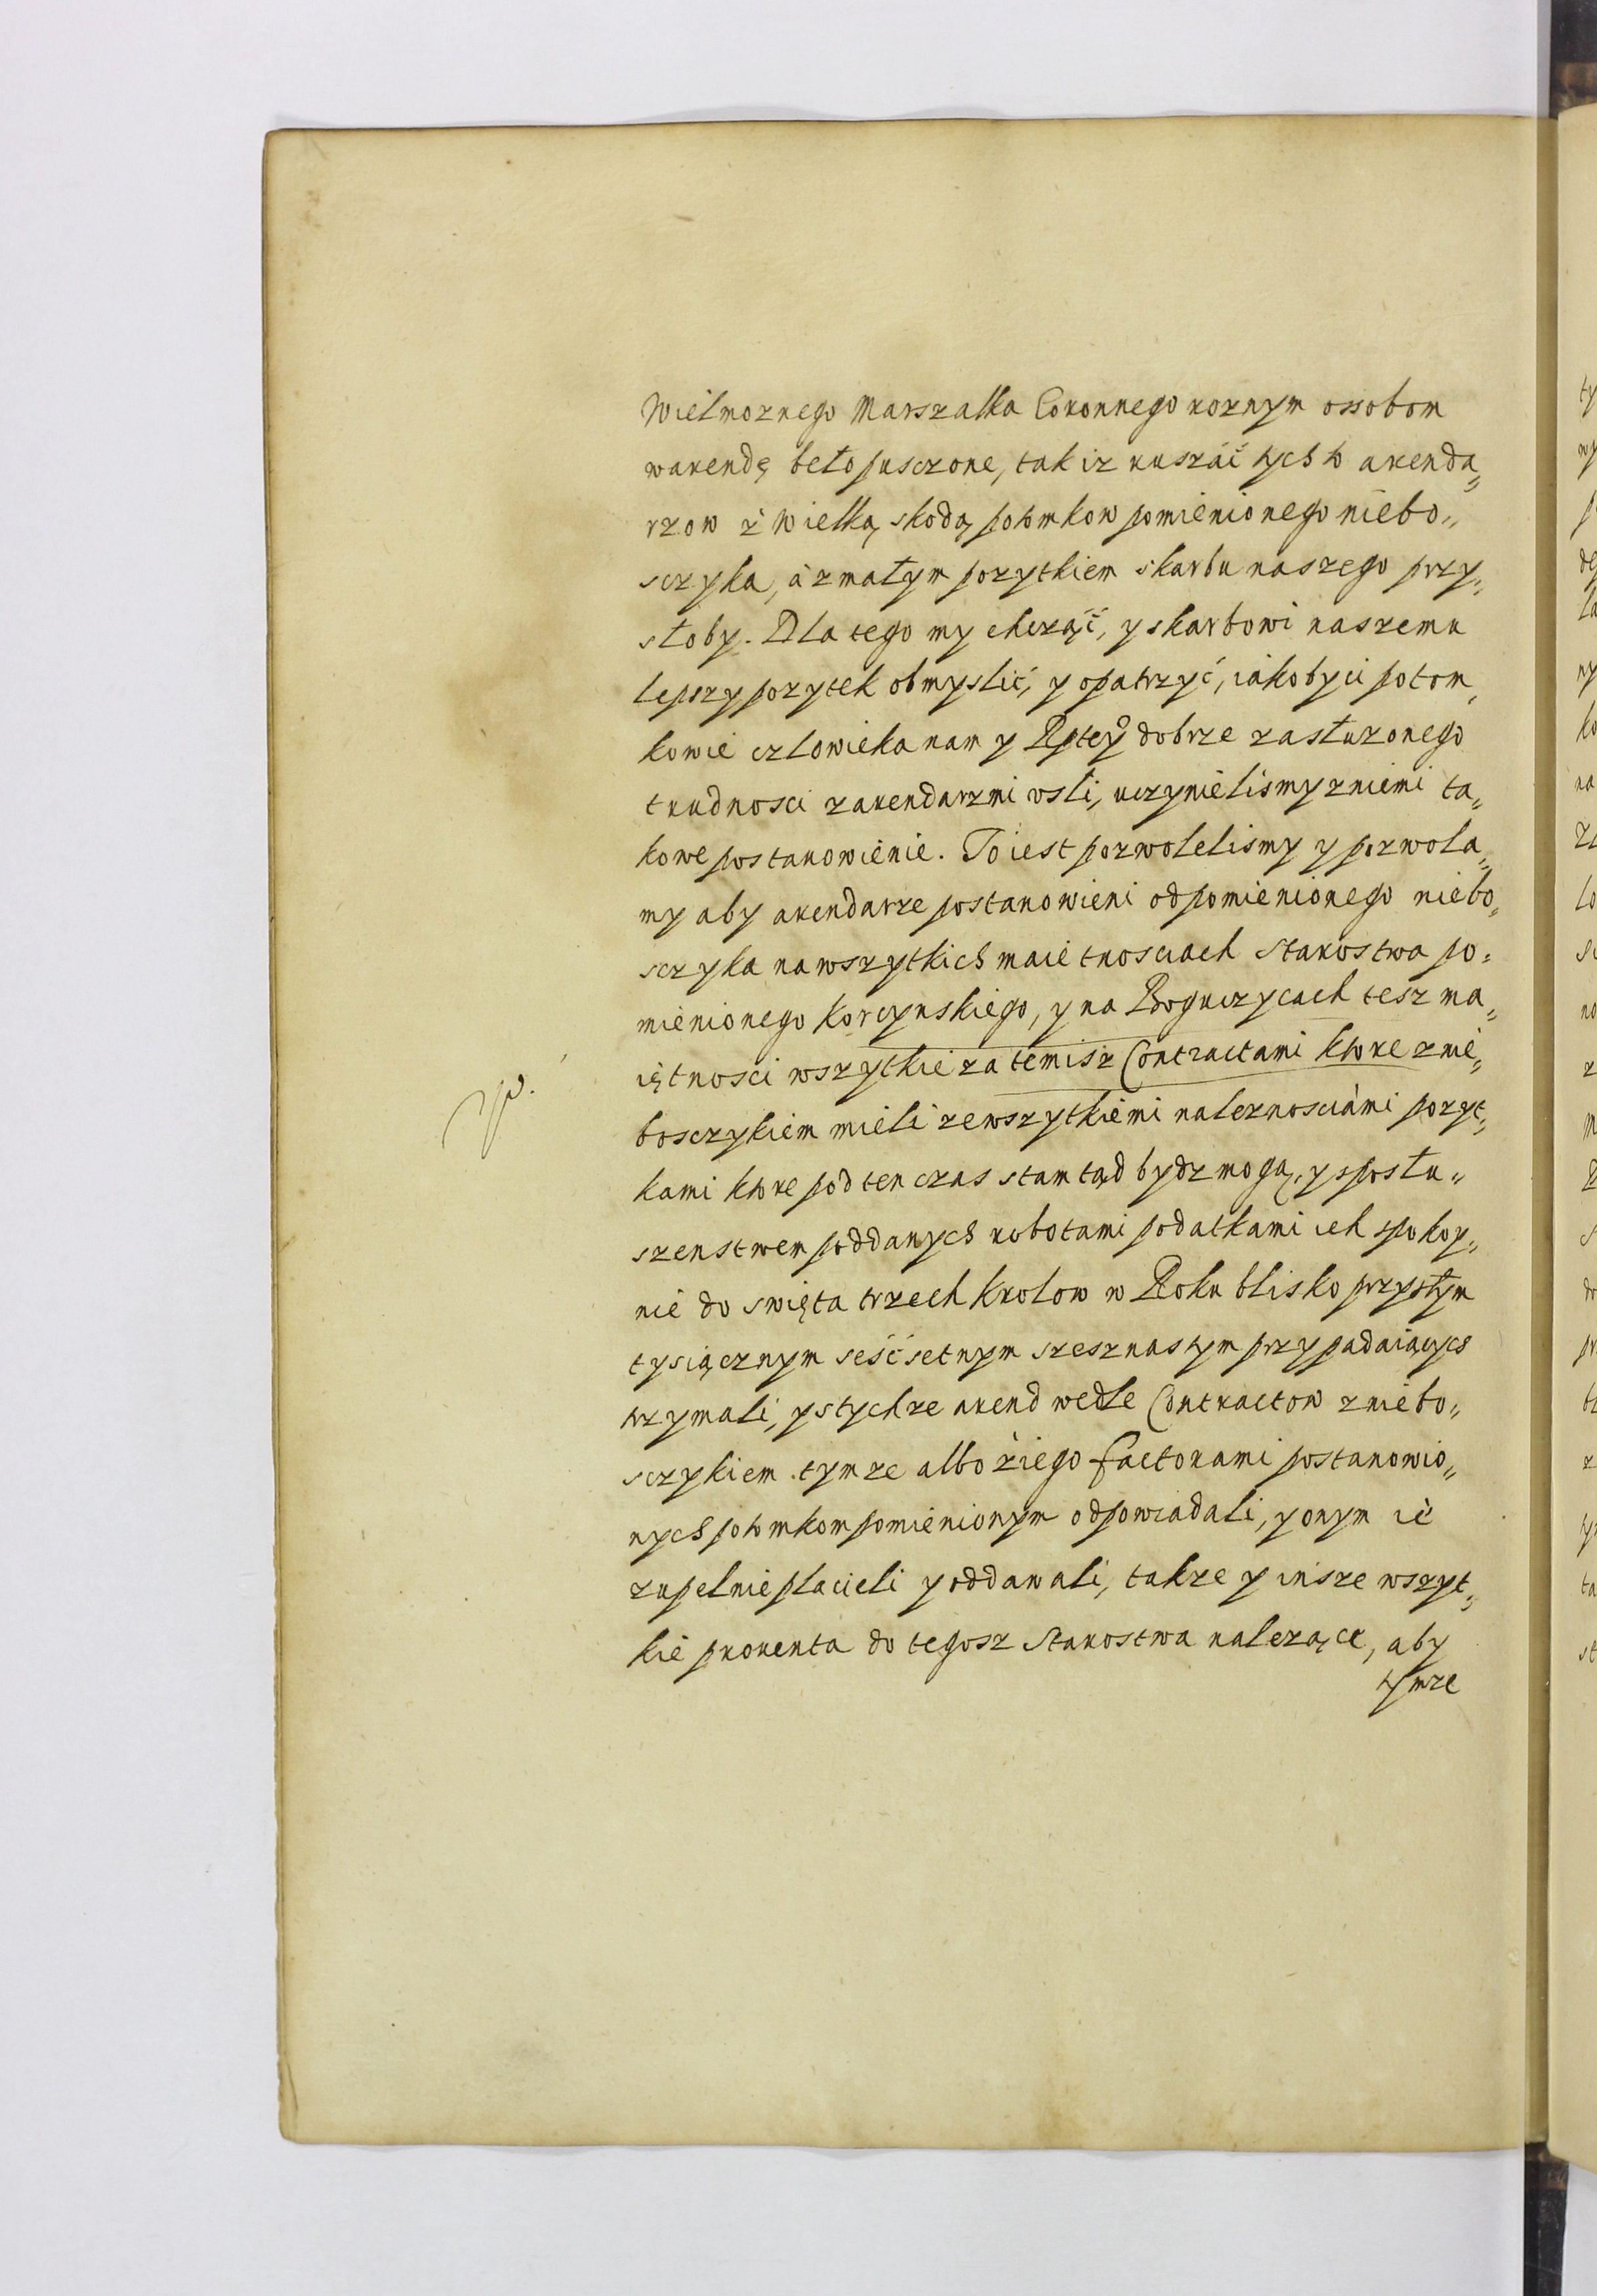 Wielmoznego Marszalka Coronnego roznym ossobom
warendę beło pusczone, tak iz ruszáć tych to arenda„
rzow z Wielką skodą potomkow pomienionego niebo„
sczyka, á z małym pozytkiem skarbu naszego przy„
słoby. Dla tego my chcząć, y skarbowi naszemu
Lepszy pozytek obmyslić, y opatrzyć, iakoby ci potom„
kowie czlowieka nam y Rptey dobrze zasłuzonego
trudnosci z arendarzmi vsli, uczynielismy z niemi ta„
kowe postanowienie. To iest pozwolelismy y pozwola„
my aby arendarze postanowieni od pomienionego niebo„
sczyka na wszytkich maietnosciach Starostwa po„
mienionego Korcynskiego, y na Boguczycach tesz ma„
iętnosci wszytkie za temisz Contractami ktore z nie„
bosczykiem mieli ze wszytkiemi naleznosciámi pozyt„
kami ktore pod ten czas stamtąd bydz mogą, y s posłu„
szenstwem poddanych robotami podatkami ich spokoy„
nie do swięta trzech Krolow w Roku blisko przysłym
tysiącznym seśćsetnym szesznastym przypadaiących
trzymali, y s tychze arend wedle Contractow z niebo„
sczykiem tymze albo z iego factorami postanowio„
nych potomkom pomienionym odpowiadali, y onym ie
zupelnie placieli y oddawali, takze y insze wszyt„
kie prowenta do tegosz Starostwa nalezące, aby
tymze